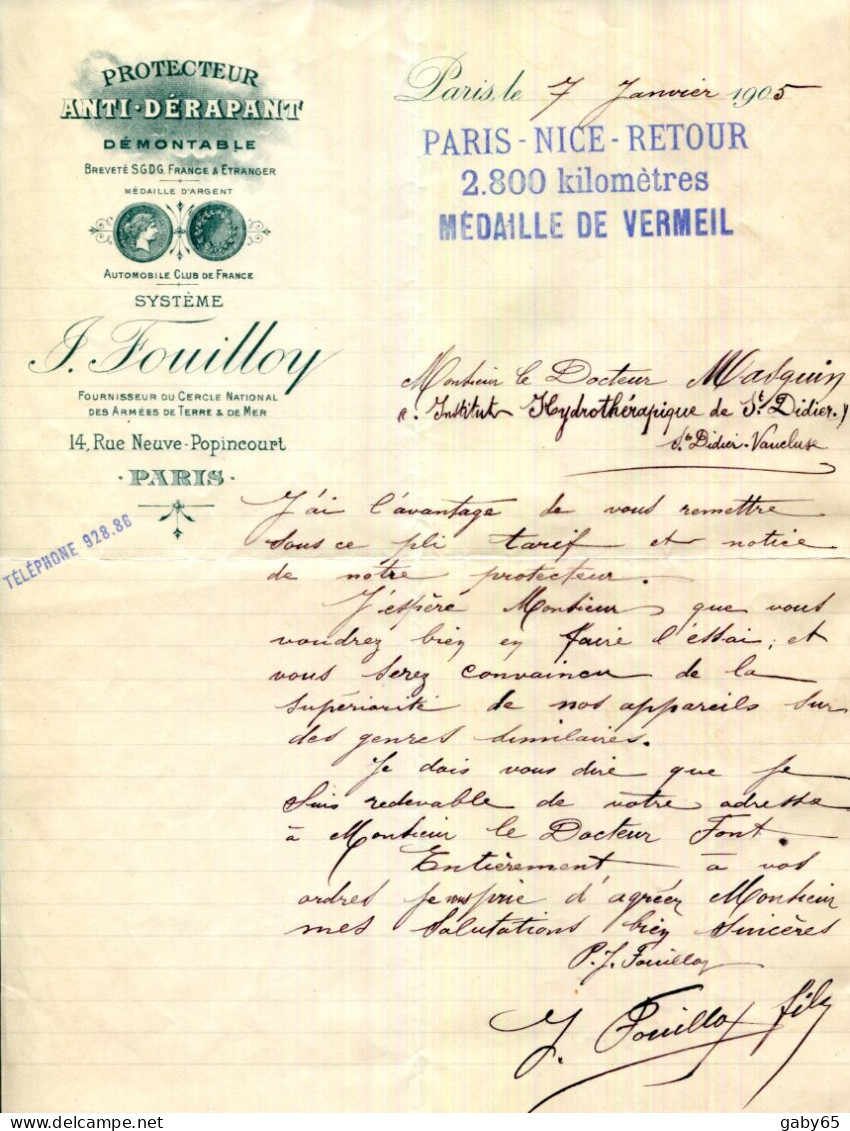 PROTECTEUR
ANTI-DÉRAPANT
DÉMONTABLE
BREVETÉ S.G.D.G. FRANCE & ETRANGER
MÉDAILLE D'ARGENT
AUTOMOBILE CLUB DE FRANCE
SYSTÈME
J. Fouilloy
FOURNISSEUR DU CERCLE NATIONAL
DES ARMÉES DE TERRE & DE MER
14, RUE NEUVE-POPINCOURT
PARIS
TÉLÉPHONE 928.86
Paris, le 7 Janvier 1905
PARIS - NICE - RETOUR
2.800 kilomètres
MÉDAILLE DE VERMEIL
Monsieur le Docteur Masquin
(. Institut Hydrothérapique de St Didier.)
St Didier. Vaucluse
J'ai l'avantage de vous remettre
sous ce pli tarif et notice
de notre protecteur.
J'espère Monsieur que vous
voudrez bien en faire l'essai, et
vous serez convaincu de la
supériorité de nos appareils sur
des genres similaires.
Je dois vous dire que je
suis redevable de votre adresse
à Monsieur le Docteur Font.
Entièrement à vos
ordres je vous prie d'agréer Monsieur
mes salutations bien sincères
P. J. Fouilloy
J. Fouilloy fils
delcampe.net
gaby65